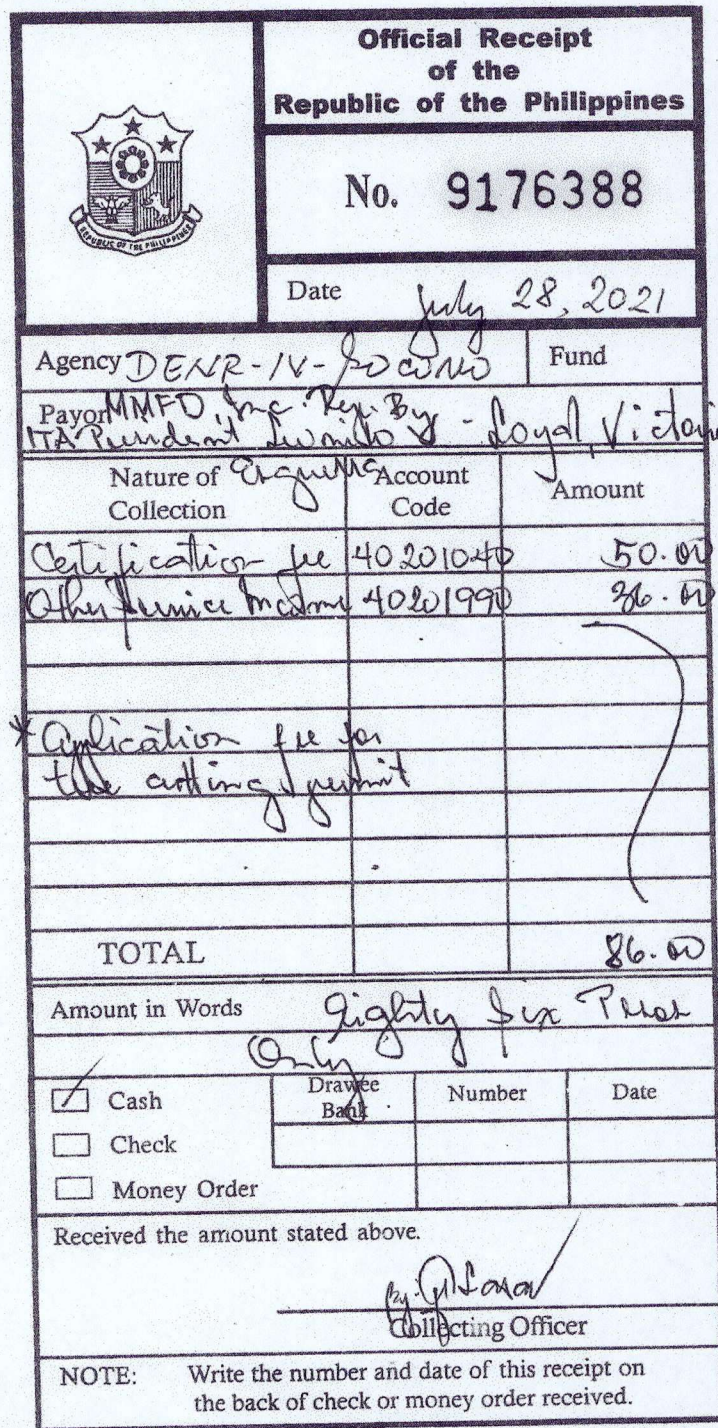 Official Receipt
of the
Republic of the Philippines
REPUBLIC OF THE PHILIPPINES
No. 9176388
Date July 28, 2021
Agency DENR-IV- Fund
Payor MMFD, Inc. Rep. By
President Loyal, Victoria
Nature of Collection Account Code Amount
Certification fee 40201040 50.00
Other Service Income 40201990 36.00
* Application fee for
tree cutting permit
TOTAL 86.00
Amount in Words Eighty Six Pesos
Only
Cash Drawee Bank Number Date
Check
Money Order
Received the amount stated above.
Collecting Officer
NOTE: Write the number and date of this receipt on
the back of check or money order received.